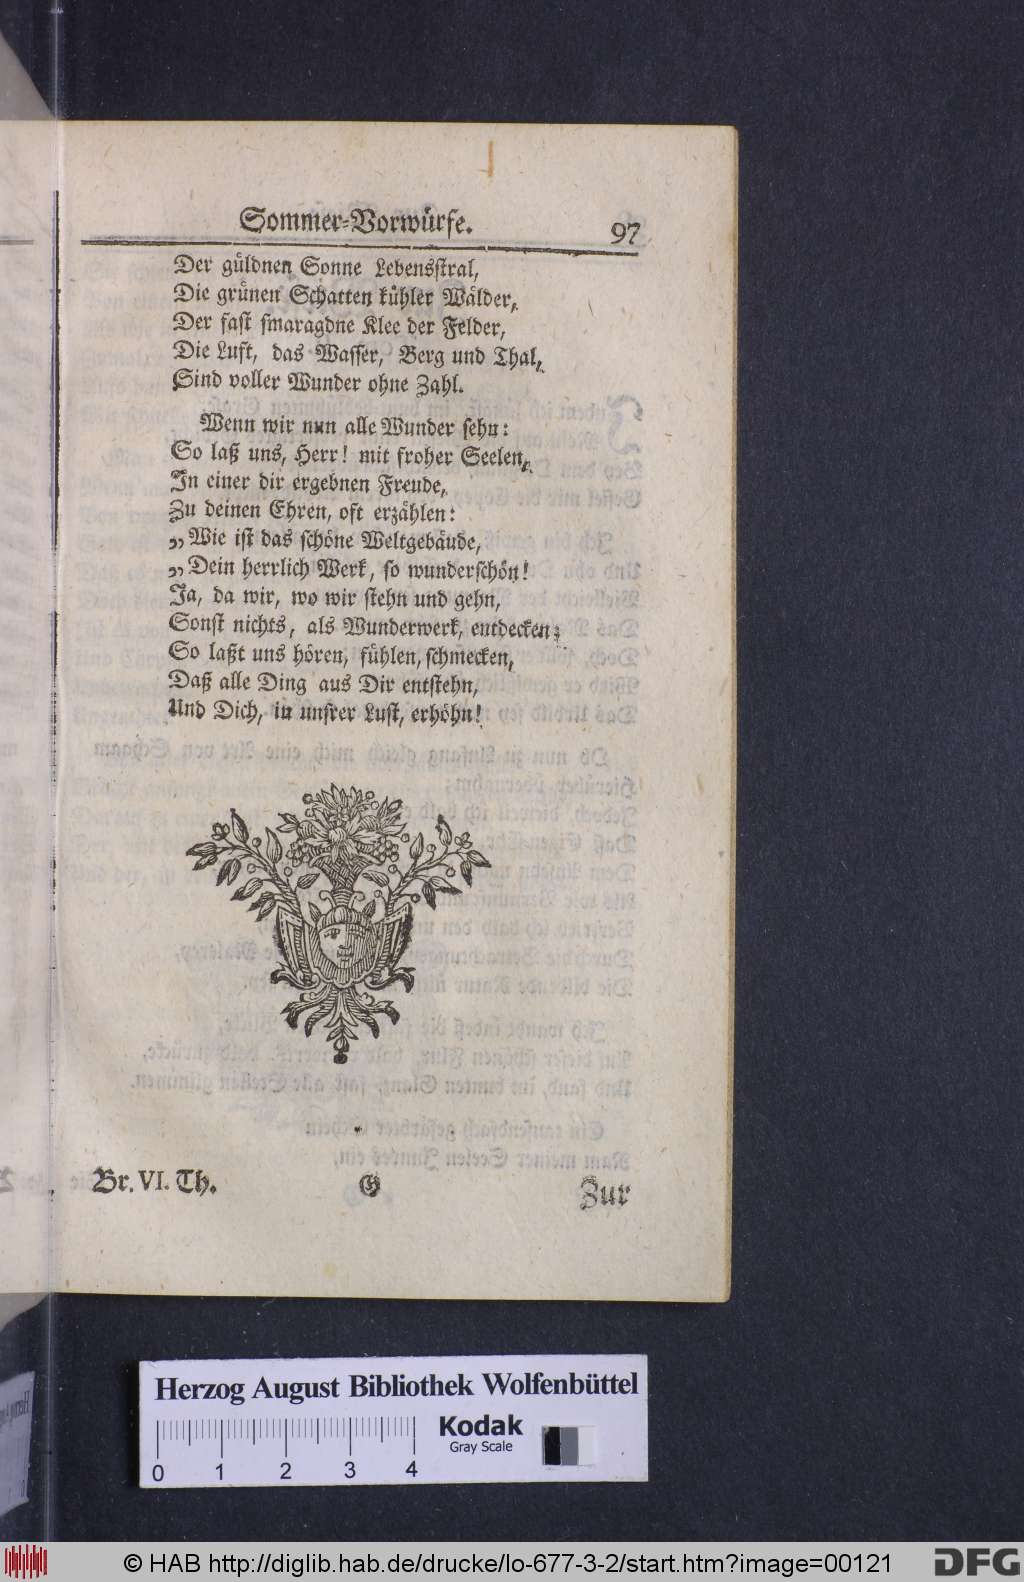 Sommer-Vorwürfe. 97
Der güldnen Sonne Lebensstral,
Die grünen Schatten kühler Wälder,
Der fast smaragdne Klee der Felder,
Die Luft, das Wasser, Berg und Thal,
Sind voller Wunder ohne Zahl.
Wenn wir nun alle Wunder sehn:
So laß uns, Herr! mit froher Seelen,
In einer dir ergebnen Freude,
Zu deinen Ehren, oft erzählen:
„Wie ist das schöne Weltgebäude,
„Dein herrlich Werk, so wunderschön!
Ja, da wir, wo wir stehn und gehn,
Sonst nichts, als Wunderwerk, entdecken;
So laßt uns hören, fühlen, schmecken,
Daß alle Ding aus Dir entstehn,
Und Dich, in unsrer Lust, erhöhn!
Br. VI. Th. G Zur
Herzog August Bibliothek Wolfenbüttel
Kodak
Gray Scale
0 1 2 3 4
© HAB http://diglib.hab.de/drucke/lo-677-3-2/start.htm?image=00121
DFG